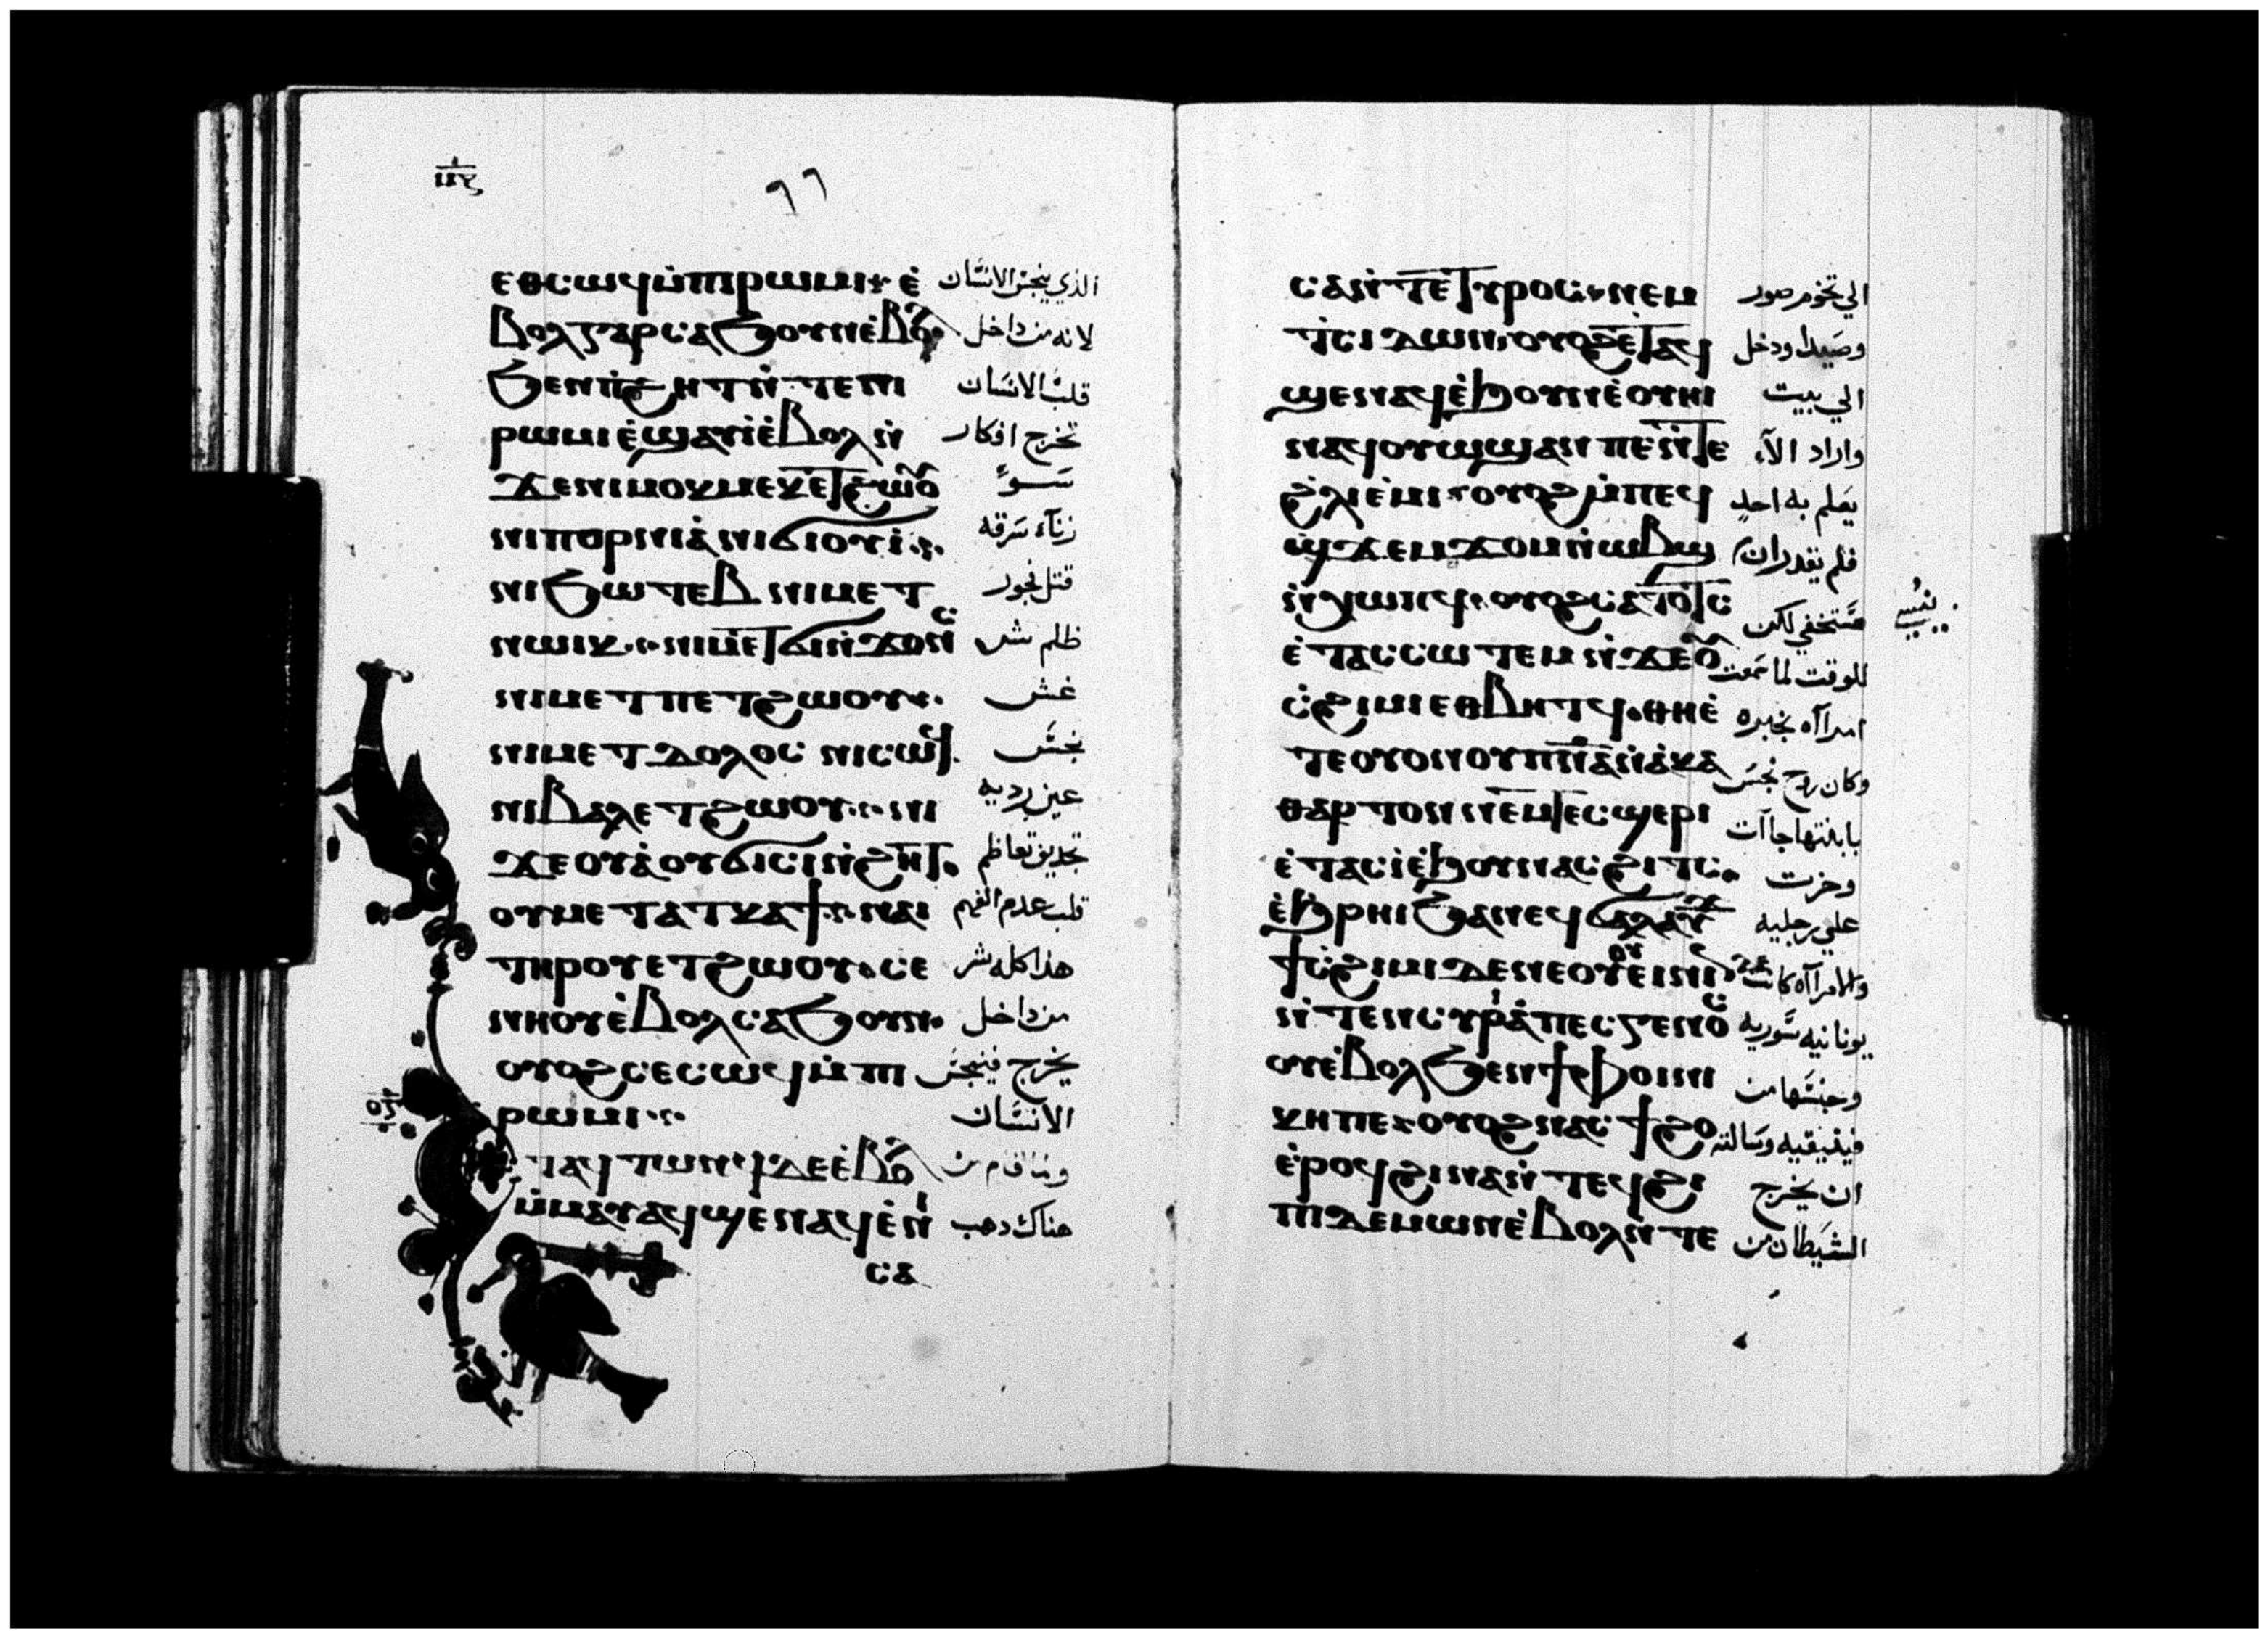 ٦٦
ⲉⲑⲥⲱϥ ⲙ̀ⲡⲓⲣⲱⲙⲓ ⲉ̀ الذي ينجس الانسان
ⲃⲟⲗ ⲅⲁⲣ ⲥⲁϧⲟⲩⲛ ⲉ̀ⲃⲟⲗ لانه من داخل
ϧⲉⲛ ⲡ̀ϩⲏⲧ ⲛ̀ⲧⲉ ⲛⲓ قلب الانسان
ⲣⲱⲙⲓ ⲉ̀ϣⲁⲩⲓ̀ ⲉ̀ⲃⲟⲗ ⲛ̀ تخرج افكار
ϫⲉ ⲛⲓⲙⲟⲕⲙⲉⲕ ⲉⲧϩⲱⲟⲩ سو
ⲛⲓⲡⲟⲣⲛⲓⲁ̀ ⲛⲓϭⲓⲟⲩⲓ̀ زناء سرقه
ⲛⲓϧⲱⲧⲉⲃ ⲛⲓⲙⲉⲧ قتل فجور
ⲛⲱⲓⲕ ⲛⲓⲙⲉⲧϭⲓⲛ̀ϫⲟⲛⲥ ظلم شر
ⲛⲓⲙⲉⲧⲡⲉⲧϩⲱⲟⲩ غش
ⲛⲓⲙⲉⲧⲇⲟⲗⲟⲥ ⲛⲓⲥⲱϥ نجس
ⲛⲓⲃⲁⲗ ⲉⲧϩⲱⲟⲩ ⲛⲓ عين رديه
ϫⲉⲟⲩⲁ̀ ⲟⲩϭⲓⲥⲓ ⲛ̀ϩⲏⲧ تجديف تعاظم
ⲟⲩⲙⲉⲧⲁⲧⲕⲁϯ ⲛⲁⲓ قلب عدم الفهم
ⲧⲏⲣⲟⲩ ⲉⲧϩⲱⲟⲩ ⲥⲉ هذا كله شر
ⲛⲏⲟⲩ ⲉ̀ⲃⲟⲗ ⲥⲁϧⲟⲩⲛ من داخل
ⲟⲩⲟϩ ⲥⲉⲥⲱϥ ⲙ̀ⲡⲓ يخرج فينجس
ⲣⲱⲙⲓ الانسان
ⲧⲁϥⲧⲱⲛϥ ⲇⲉ ⲉ̀ⲃⲟⲗ ولما قام من
ⲙ̀ⲙⲁⲩ ⲁϥϣⲉⲛⲁϥ ⲉ̀ⲛⲓ هناك دهب
ⲥⲁ
ⲥⲁ ⲛ̀ⲧⲉ ⲧⲩⲣⲟⲥ ⲛⲉⲙ الي تخوم صور
ⲧ̀ⲥⲓⲇⲱⲛ ⲟⲩⲟϩ ⲉⲧⲁϥ وصيدا ودخل
ϣⲉⲛⲁϥ ⲉ̀ϧⲟⲩⲛ ⲉ̀ⲟⲩⲏⲓ الي بيت
ⲛⲁϥⲟⲩⲱϣ ⲁⲛ ⲡⲉ ⲛ̀ⲧⲉ واراد الآء
ϩ̀ⲗⲓ ⲉ̀ⲙⲓ ⲟⲩⲟϩ ⲙ̀ⲡⲉϥ يعلم به احد
ϣϫⲉⲙϫⲟⲙ ⲛ̀ⲱⲃϣ فلم يقدر ان
ⲛ̀ϫⲱⲡϥ ⲟⲩⲟϩ ⲥⲁⲧⲟⲧⲥ يستخفي لكن
ⲉ̀ⲧⲁⲥⲥⲱⲧⲉⲙ ⲛ̀ϫⲉ ⲟⲩ للوقت لما سمعت
ⲥ̀ϩⲓⲙⲓ ⲉⲑⲃⲏⲧϥ ⲑⲏ ⲉ̀ امراآه بخبره
ⲧⲉ ⲟⲩⲟⲛ ⲟⲩⲡⲛⲁ ⲛ̀ⲁ̀ⲕⲁ وكان روح نجس
ⲑⲁⲣⲧⲟⲛ ⲛⲉⲙ ⲧⲉⲥϣⲉⲣⲓ بابنتها جاآت
ⲉ̀ⲧⲁⲥⲓ̀ ⲉ̀ϧⲟⲩⲛ ⲁⲥϩⲓⲧⲥ وخرت
ⲉ̀ϧⲣⲏⲓ ϧⲁ ⲛⲉϥϭⲁⲗⲁⲩϫ علي رجليه
ϯⲥ̀ϩⲓⲙⲓ ⲇⲉ ⲛⲉ ⲟⲩⲟⲩⲉⲓⲛⲓⲛ والامراآه كانت
ⲛ̀ⲧⲉ ⲛ̀ⲥⲩⲣⲁ̀ ⲡⲉⲥⲅⲉⲛⲟⲥ يونانيه سوريه
ⲟⲩⲉ̀ⲃⲟⲗ ϧⲉⲛ ϯⲫⲟⲓⲛⲓ وجنسها من
ⲕⲏ ⲡⲉ ⲟⲩⲟϩ ⲛⲁⲥϯϩⲟ فينيقيه وسالته
ⲉ̀ⲣⲟϥ ϩⲓⲛⲁ ⲛ̀ⲧⲉϥϩⲓ ان يخرج
ⲡⲓⲇⲉⲙⲱⲛ ⲉ̀ⲃⲟⲗ ⲛ̀ⲧⲉ الشيطان من